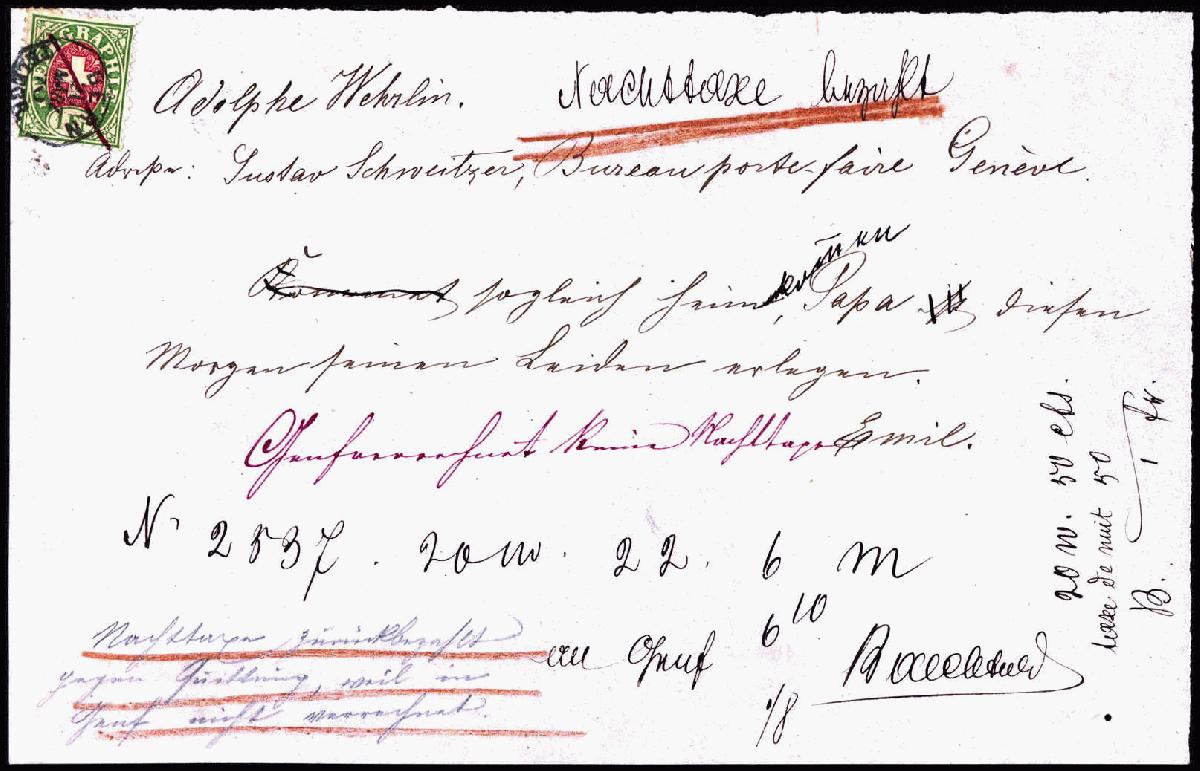 TELEGRAPHIE
Adolphe Wehrlin. Nachttaxe bezahlt
Adresse: Gustav Schweitzer, Bureau porte-faire Genève.
kommen
Kommet sogleich heim, Papa ist diesen
Morgen seinen Leiden erlegen.
Genf verrechnet keine Nachttaxe Emil.
Nº 2537. 20 W. 22. 6 M
6 10
an Genf
/8
Nachttaxe zurückbezahlt
gegen Quittung, weil in
Genf nicht verrechnet.
20 W. 50 cts.
taxe de nuit 50
1 Fr.
B.